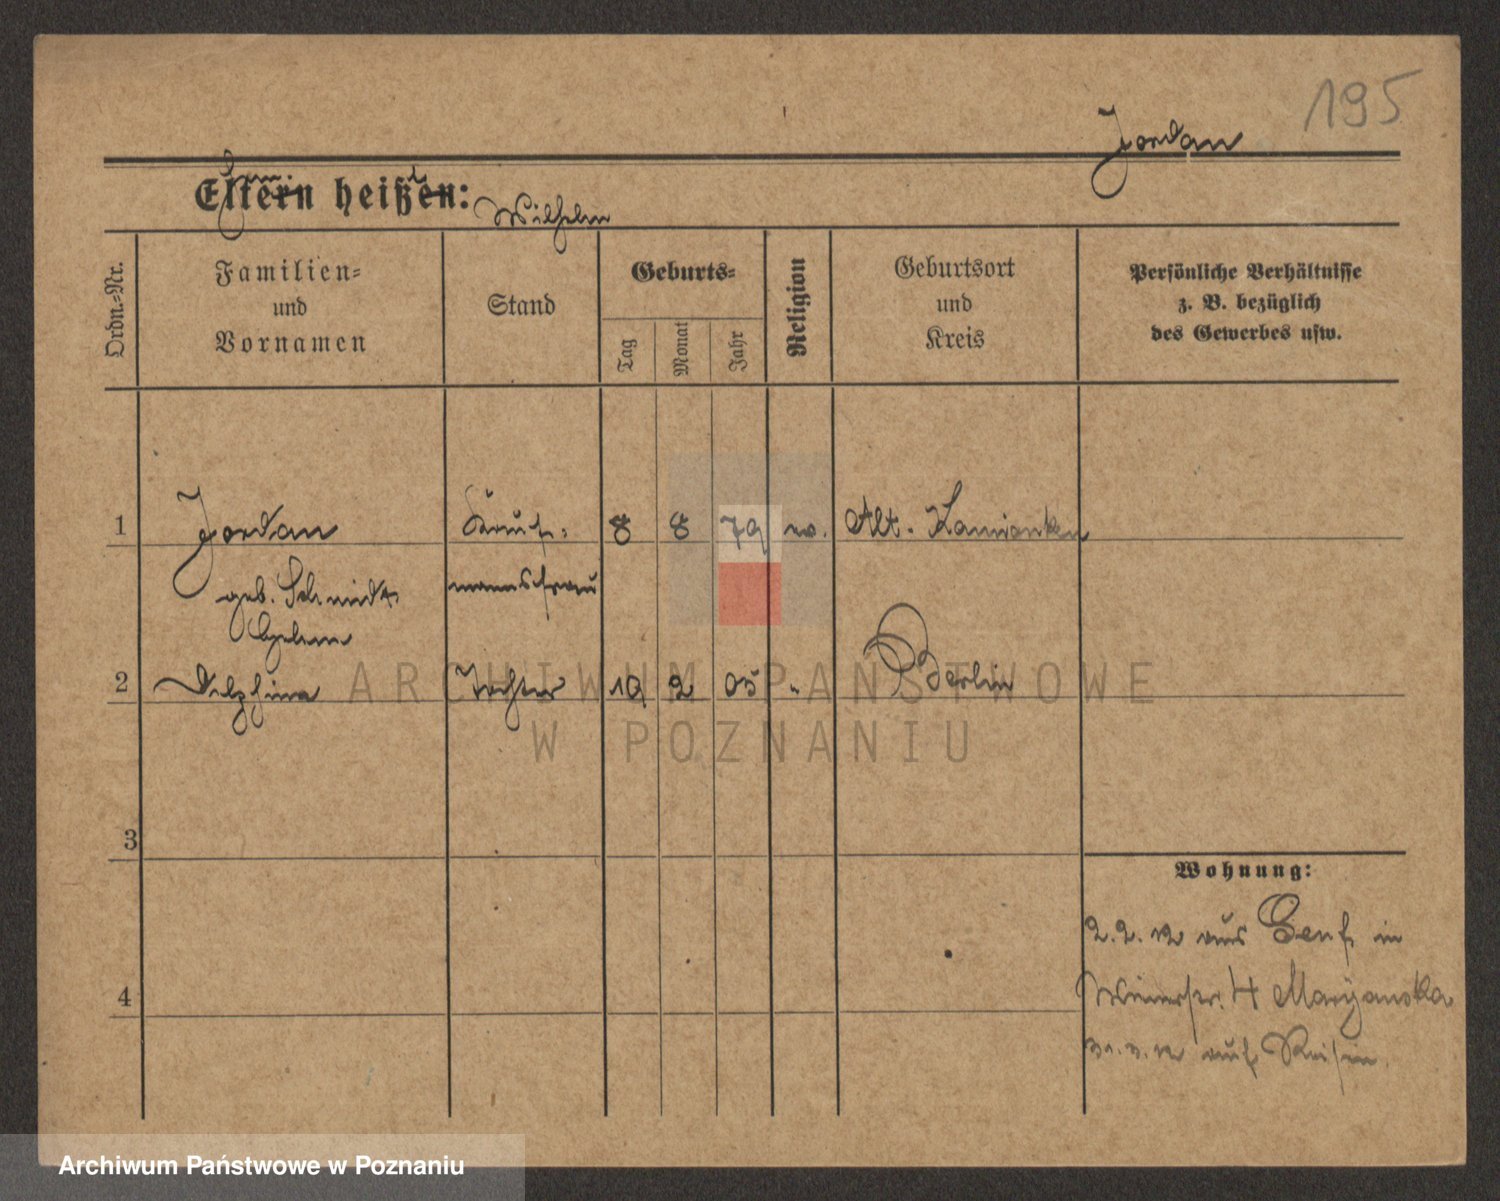 195
Jordan
Eltern heißen:
Wilhelm
Ordn.-Nr.
Familien-
und
Vornamen
Stand
Geburts-
Tag
Monat
Jahr
Religion
Geburtsort
und
Kreis
Persönliche Verhältnisse
z. B. bezüglich
des Gewerbes usw.
1 Jordan Kauf- 8 8 79 ev. Alt. Kamionken
geb. Schmidt mannsfrau
2 Delphina Tochter 19 2 05 " Berlin
3
4
Wohnung:
2.2.12 aus Genf in
4 Maryanska
31.3.12 auf Reisen
ARCHIWUM PAŃSTWOWE
W POZNANIU
Archiwum Państwowe w Poznaniu